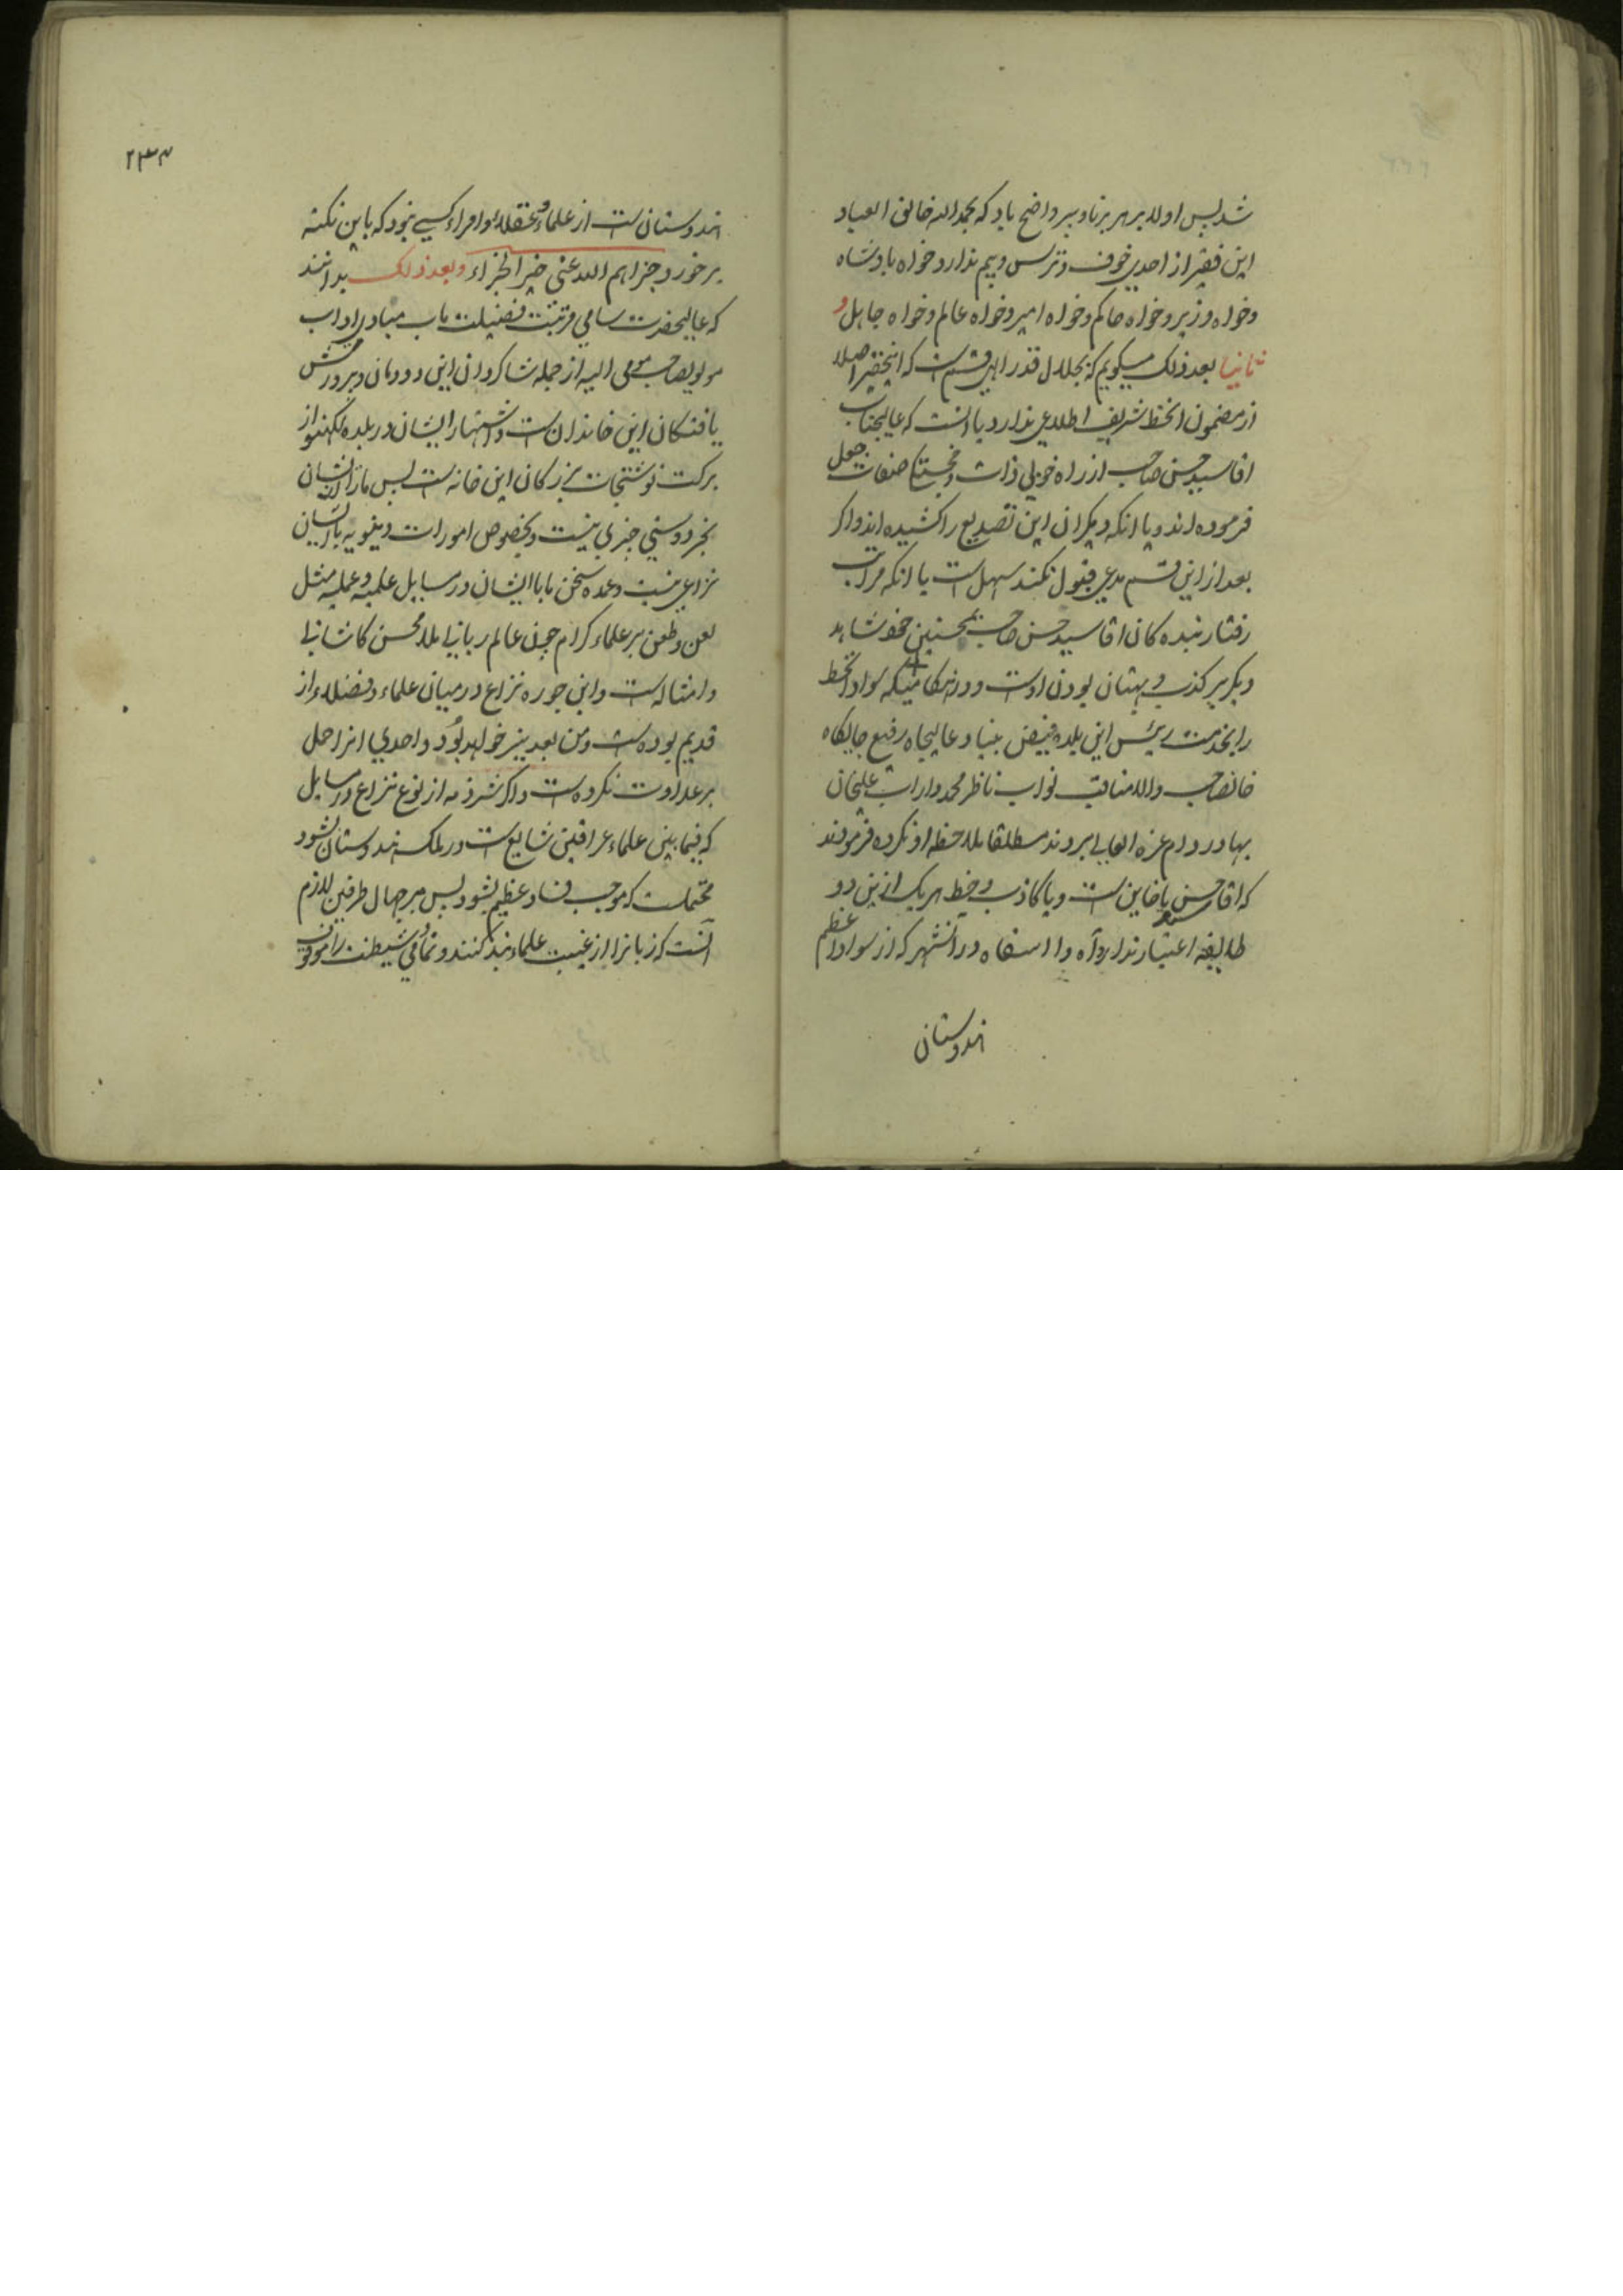 شد پس اولا بر هر برنا و پیر واضح باد که بحمد الله خالق العباد
این فقیر از احدی خوف و ترس و بیم ندارد خواه بادشاه
و خواه وزیر و خواه حاکم و خواه امیر و خواه عالم و خواه جاهل و
ثانیا بعد ذلک میکویم که بجلال قدر الهی قسم است که اینحقیر اصلا
از مضمون انخط شریف اطلاعی ندارد یا انست که عالیجناب
اقا سید حسن صاحب از راه خوبی ذات و خجستکی صفات جعل
فرموده اند و یا انکه دیکران این تصدیع را کشیده اند و اکر
بعد از این قسم مدعی قبول نکند سهل است یا انکه مراتب
رفتار بنده کان اقا سید حسن صاحب همچنین خط شاهد
دیکر بر کذب و بهتان بودن اوست و در هنکامیکه سواد انخط
را بخدمت رئیس این بلده فیض بنیاد عالیجاه رفیع جایکاه
خانصاحب والا مناقب نواب ناظر محمد داراب علیخان
بهادر دام عزه العالی بردند مطلقا ملاحظه او نکرده فرمودند
که اقا حسن یا خاین است و یا کاذب و خط هر یک ازین دو
طایفه اعتبار ندارد آه وا اسفاه در انشهر که از سواد اعظم
هندوستان
۲۳۴
هندوستان است از علماء و عقلاء و امراء کسی نبود که باین نکته
برخورد جزاهم الله عنی خیر الجزاء و بعد ذلک بدانند
که عالیحضرت سامی مرتبت فضیلت ماب مبادی اداب
مولویصاحب مومی الیه از جمله شاکردان این دودمان و پرورش
یافتکان این خاندان است و اشتهار ایشان در بلده لکهنو از
برکت نوشتجات بزرکان این خانه است پس ما را با ایشان
بجز دوستی چیزی نیست و بخصوص امورات دنیویه با ایشان
نزاعی نیست و عمده سخن ما با ایشان در مسایل علمیه و عملیه مثل
لعن و طعن بر علماء کرام چون عالم ربانی ملا محسن کاشانی
و امثاله است و این جوره نزاع در میان علماء و فضلاء از
قدیم بوده است و من بعد نیز خواهد بود و احدی انرا حمل
بر عداوت نکرده است و اکر شرذمه از نوع نزاع در مسایل
که فیما بین علماء عراقین شایع است در ملک هندوستان بشود
محتملست که موجب فساد عظیم بشود پس بر جهال طرفین لازم
آنست که زبانرا از غیبت علماء بند کنند و نمامی و شیطنت را موقوف